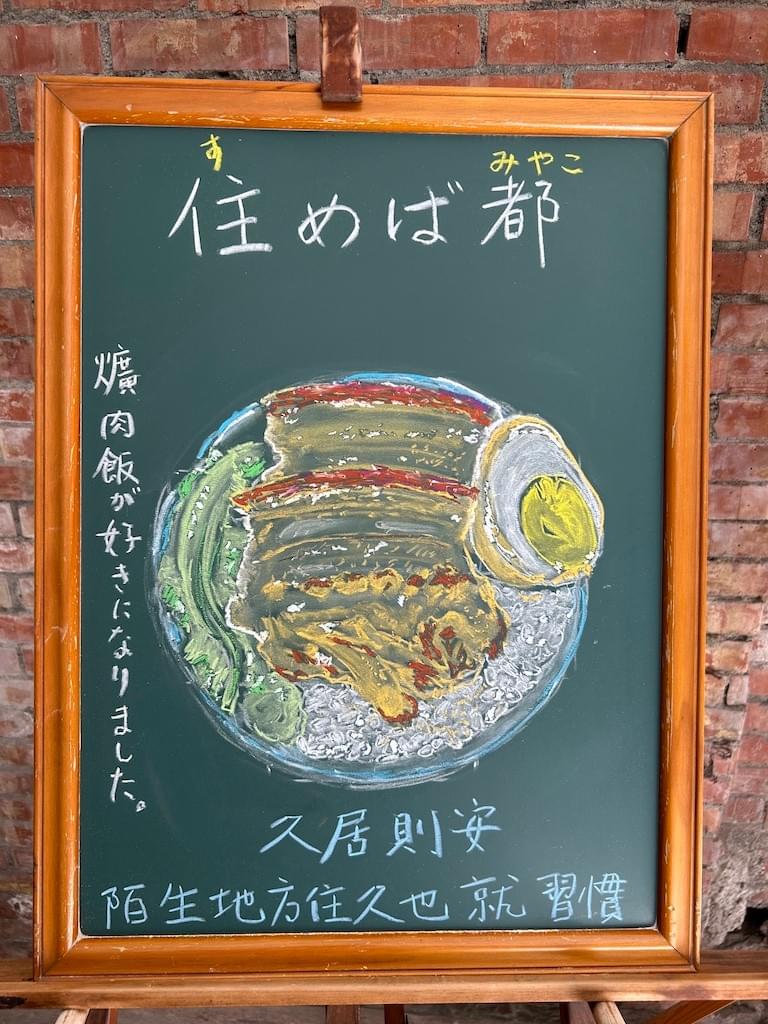 す みやこ
住めば都
爌肉飯が好きになりました。
久居則安
陌生地方住久也就習慣